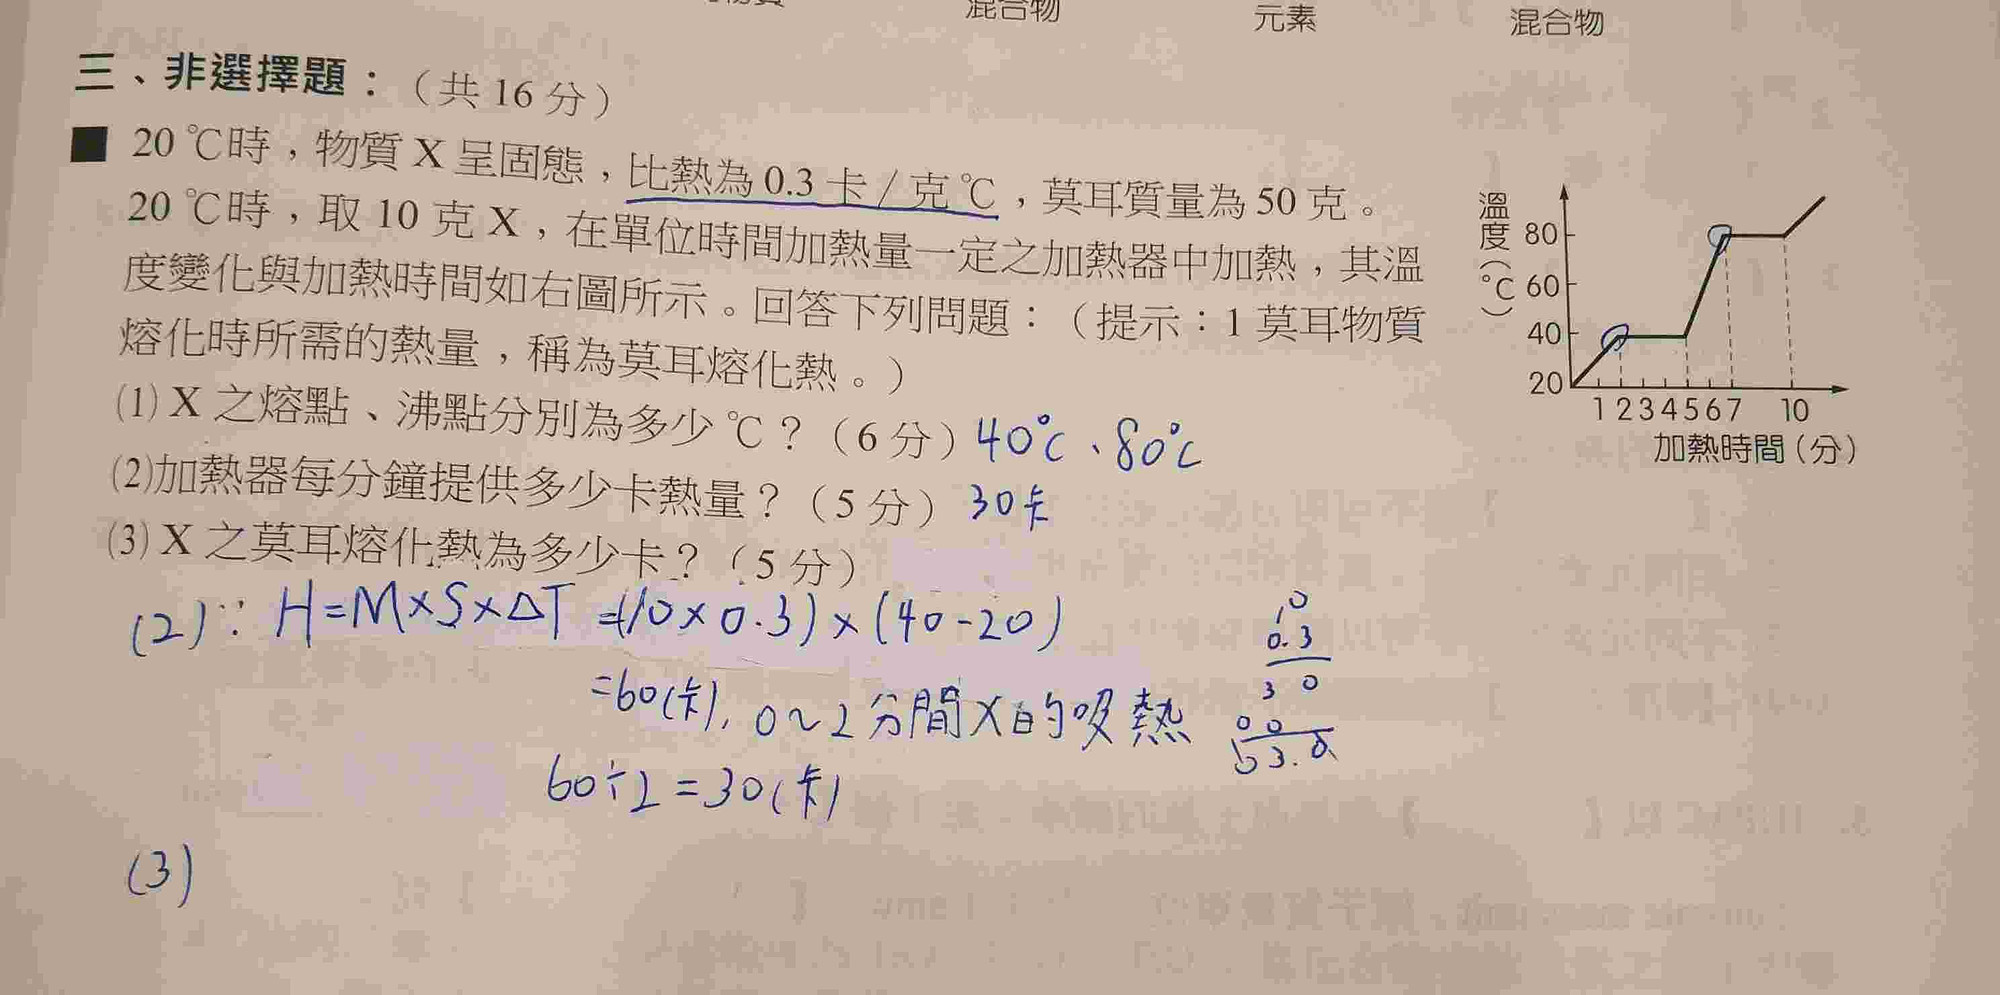 混合物
元素
混合物
三、非選擇題：（共 16 分）
■ 20 ℃時，物質 X 呈固態，比熱為 0.3 卡／克 ℃，莫耳質量為 50 克。
20 ℃時，取 10 克 X，在單位時間加熱量一定之加熱器中加熱，其溫
度變化與加熱時間如右圖所示。回答下列問題：（提示：1 莫耳物質
熔化時所需的熱量，稱為莫耳熔化熱。）
(1) X 之熔點、沸點分別為多少 ℃？（6 分）40℃、80℃
(2)加熱器每分鐘提供多少卡熱量？（5 分）30卡
(3) X 之莫耳熔化熱為多少卡？（5 分）
溫度(℃)
80
60
40
20
1 2 3 4 5 6 7 10
加熱時間(分)
(2)∵ H=M×S×ΔT =(10×0.3)×(40-20)
=60(卡), 0~2分間X的吸熱
60÷2=30(卡)
10
0.3
3 0
0 0
0 3.0
(3)